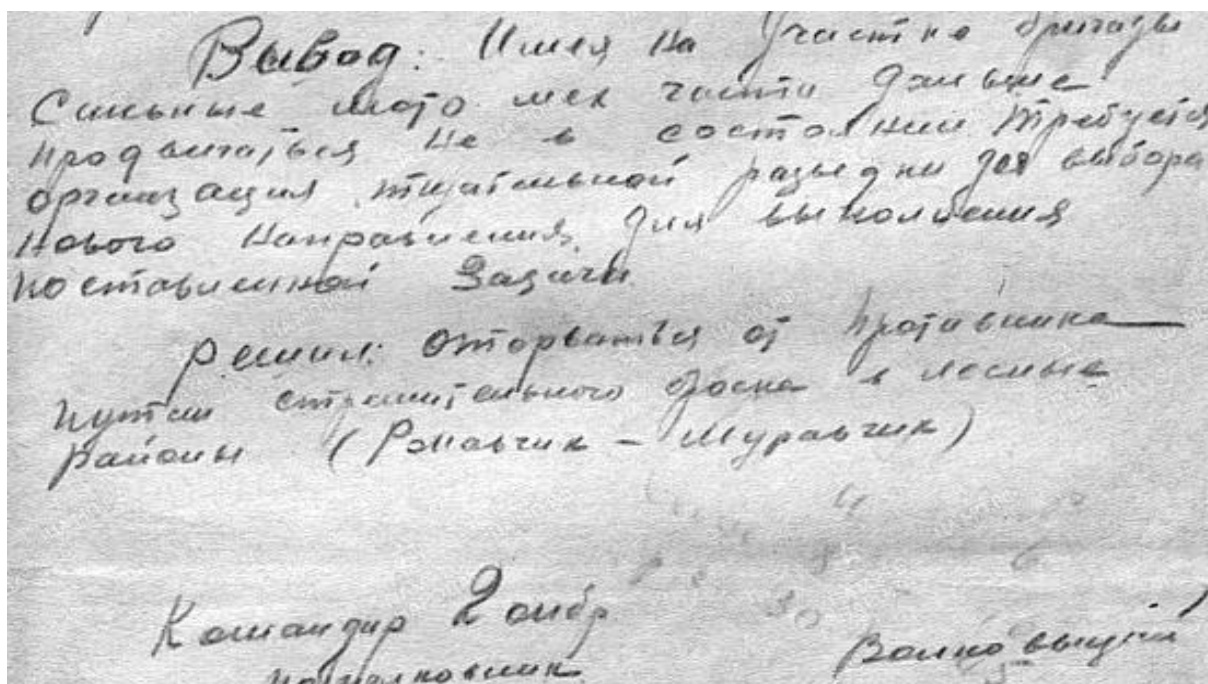 Вывод: Имея на участке бригады
Сильные мото мех части дальше
продвигаться не в состоянии. Требуется
организация тщательной разведки для выбора
нового направления, для выполнения
поставленной задачи.
Решил: Оторваться от противника
путем стремительного броска в лесные
районы (Романчик – Муравчик)
Командир 2 омбр
подполковник